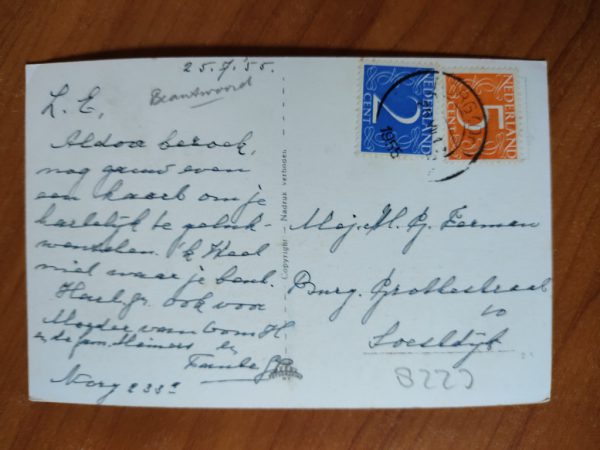 25.7.'55.
Beantwoord
L. E,
Al door bezoek,
nog gauw even
een kaart om je
hartelijk te geluk-
wenschen. Ik weet
niet waar je bent.
Hartelijk ook voor
Moeder van Oom H
en de fam. Meiners en
Tante G
Norg 233a
Copyright — Nadruk verboden
2
CENT
NEDERLAND
5
CENT
NEDERLAND
1955
Mej. M. G. Ferman
Burg. Grothestraat
10
Soestdijk